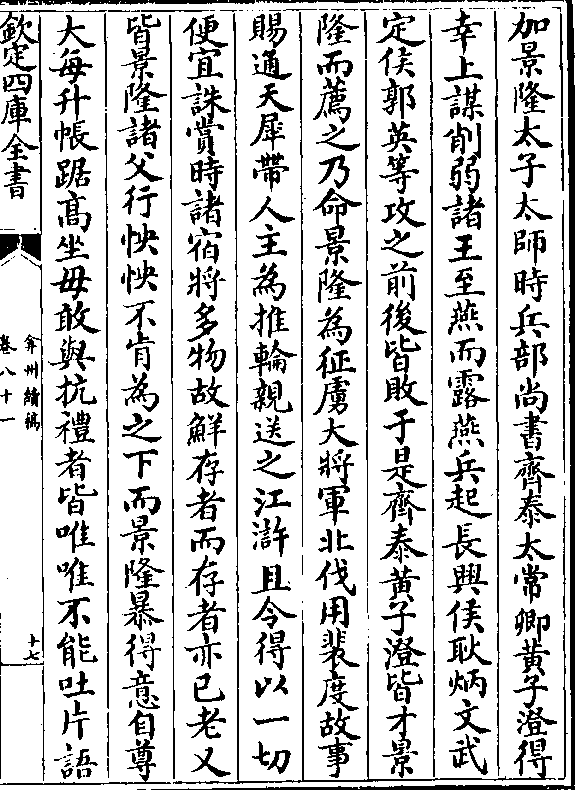 加景隆太子太師時兵部尚書齊泰太常卿黃子澄得
幸上謀削弱諸王至燕而露燕兵起長興侯耿炳文武
定侯郭英等攻之前後皆敗于是齊泰黃子澄皆才景
隆而薦之乃命景隆為征虜大將軍北伐用裴度故事
賜通天犀帶人主為推輪親送之江滸且令得以一切
便宜誅賞時諸宿將多物故鮮存者而存者亦已老又
皆景隆諸父行怏怏不肯為之下而景隆暴得意自尊
大每升帳踞高坐毋敢與抗禮者皆唯唯不能吐片語
欽定四庫全書
弇州續稿
卷八十一
十七